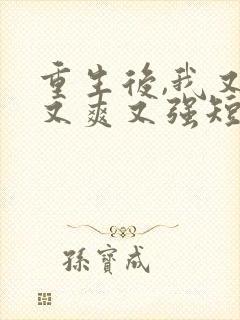 重生後,我又
又爽又强短
孫寶成